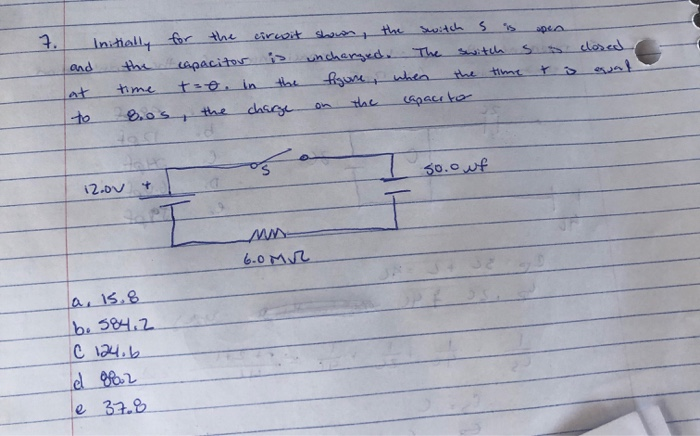 7. Initially for the circuit shown, the switch S is open
and the capacitor is uncharged. The switch S is closed
at time t=0. In the figure, when the time t is equal
to 8.0s, the charge on the capacitor
S
50.0 uf
12.0V +
6.0 MΩ
a. 15.8
b. 584.2
C 124.6
d 88.2
e 37.8